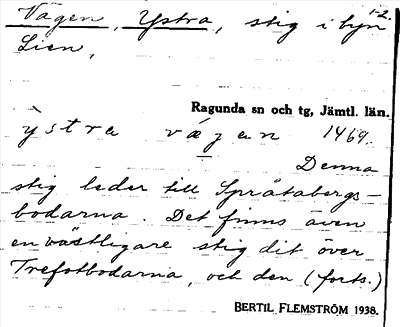 Vägen, Ystra, stig i byn 1-2.
Lien,
Ragunda sn och tg, Jämtl. län.
ỳstra vægan 1469.
Denna
stig leder till Språtabergs-
bodarna. Det finns även
en västligare stig dit över
Trefotbodarna, och den (forts.)
BERTIL FLEMSTRÖM 1938.